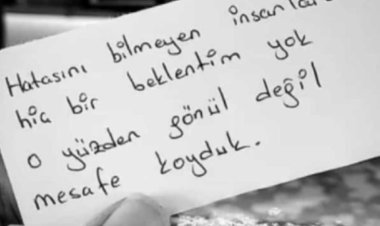 Hatasını bilmeyen insanlardan
hiç bir beklentim yok
o yüzden gönül değil
mesafe koyduk.